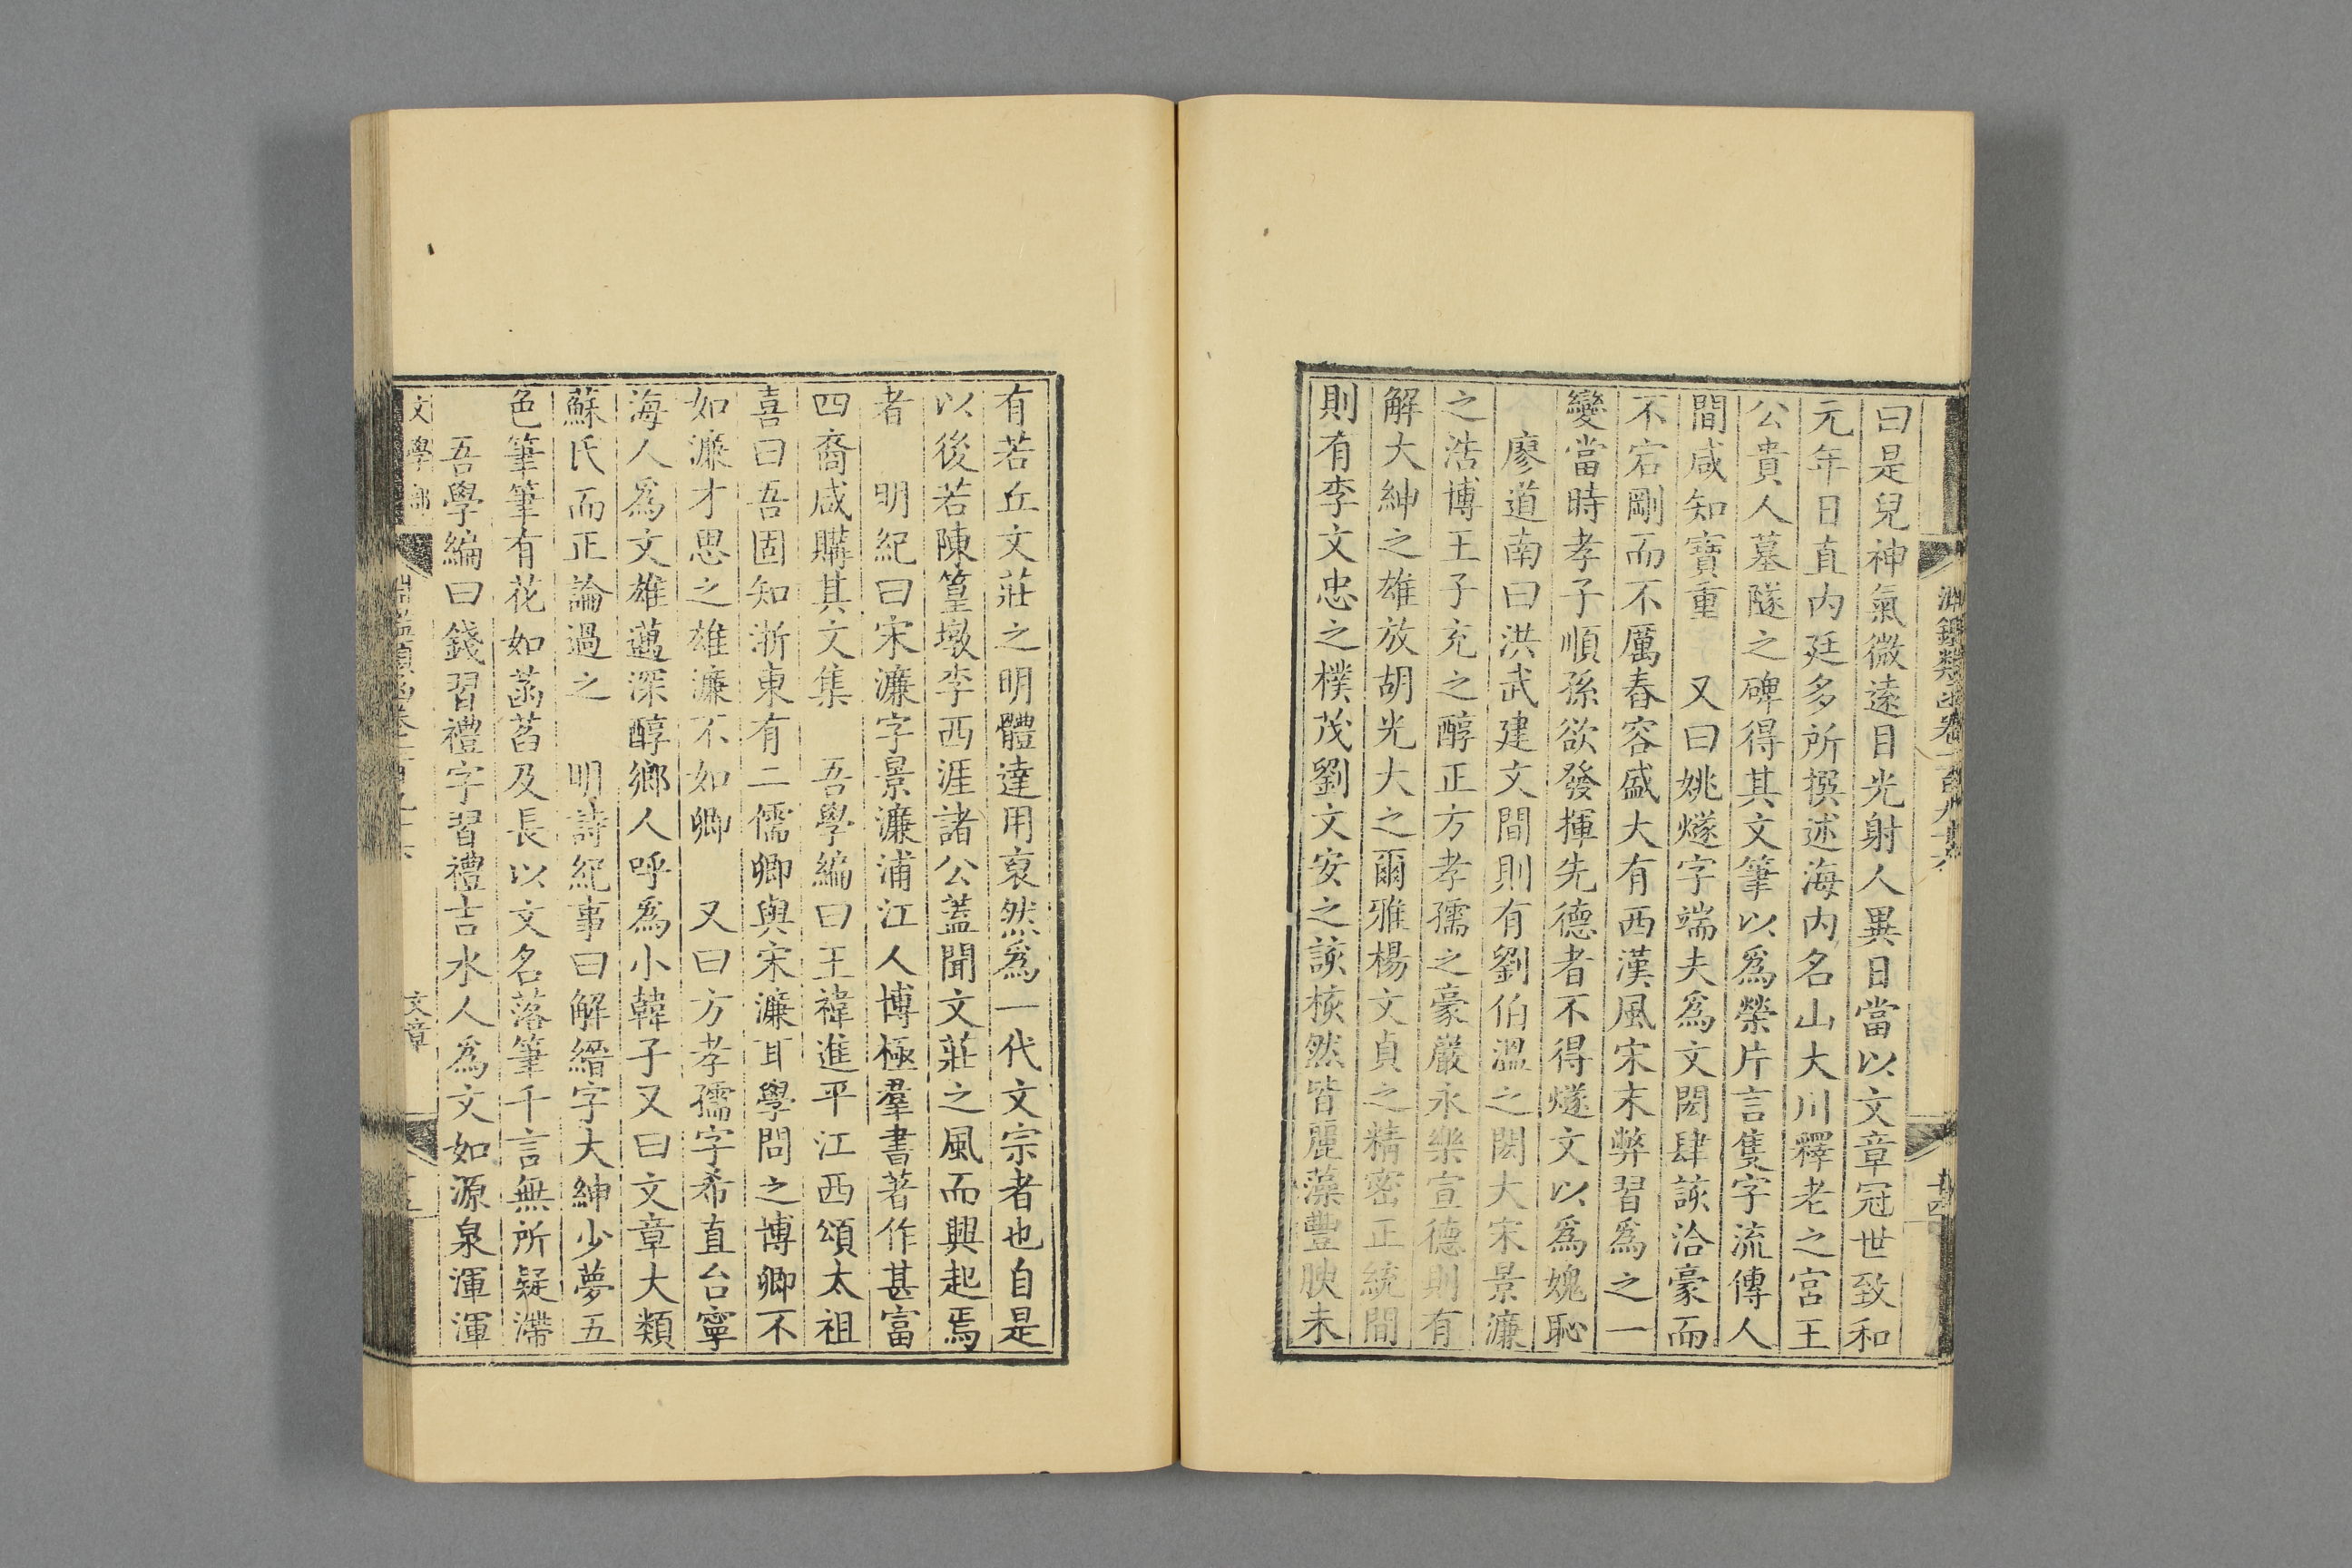 淵鑑類函卷一百九十六
廿四
曰是兒神氣微遠目光射人異日當以文章冠世致和
元年日直内廷多所撰述海内名山大川釋老之宮王
公貴人墓隧之碑得其文筆以爲榮片言隻字流傳人
間咸知寶重　又曰姚燧字端夫爲文閎肆該洽豪而
不宕剛而不厲舂容盛大有西漢風宋末弊習爲之一
變當時孝子順孫欲發揮先德者不得燧文以爲媿恥
廖道南曰洪武建文間則有劉伯溫之閎大宋景濂
之浩博王子充之醇正方孝孺之豪嚴永樂宣德則有
解大紳之雄放胡光大之爾雅楊文貞之精密正統間
則有李文忠之樸茂劉文安之該核然皆麗藻豐腴未
有若丘文莊之明體達用裒然爲一代文宗者也自是
以後若陳篁墩李西涯諸公蓋聞文莊之風而興起焉
者　明紀曰宋濂字景濂浦江人博極羣書著作甚富
四裔咸購其文集　吾學編曰王禕進平江西頌太祖
喜曰吾固知浙東有二儒卿與宋濂耳學問之博卿不
如濂才思之雄濂不如卿　又曰方孝孺字希直台寧
海人爲文雄邁深醇鄉人呼爲小韓子又曰文章大類
蘇氏而正論過之　明詩紀事曰解縉字大紳少夢五
色筆筆有花如菡萏及長以文名落筆千言無所疑滯
吾學編曰錢習禮字習禮吉水人爲文如源泉渾渾
文學部
文章